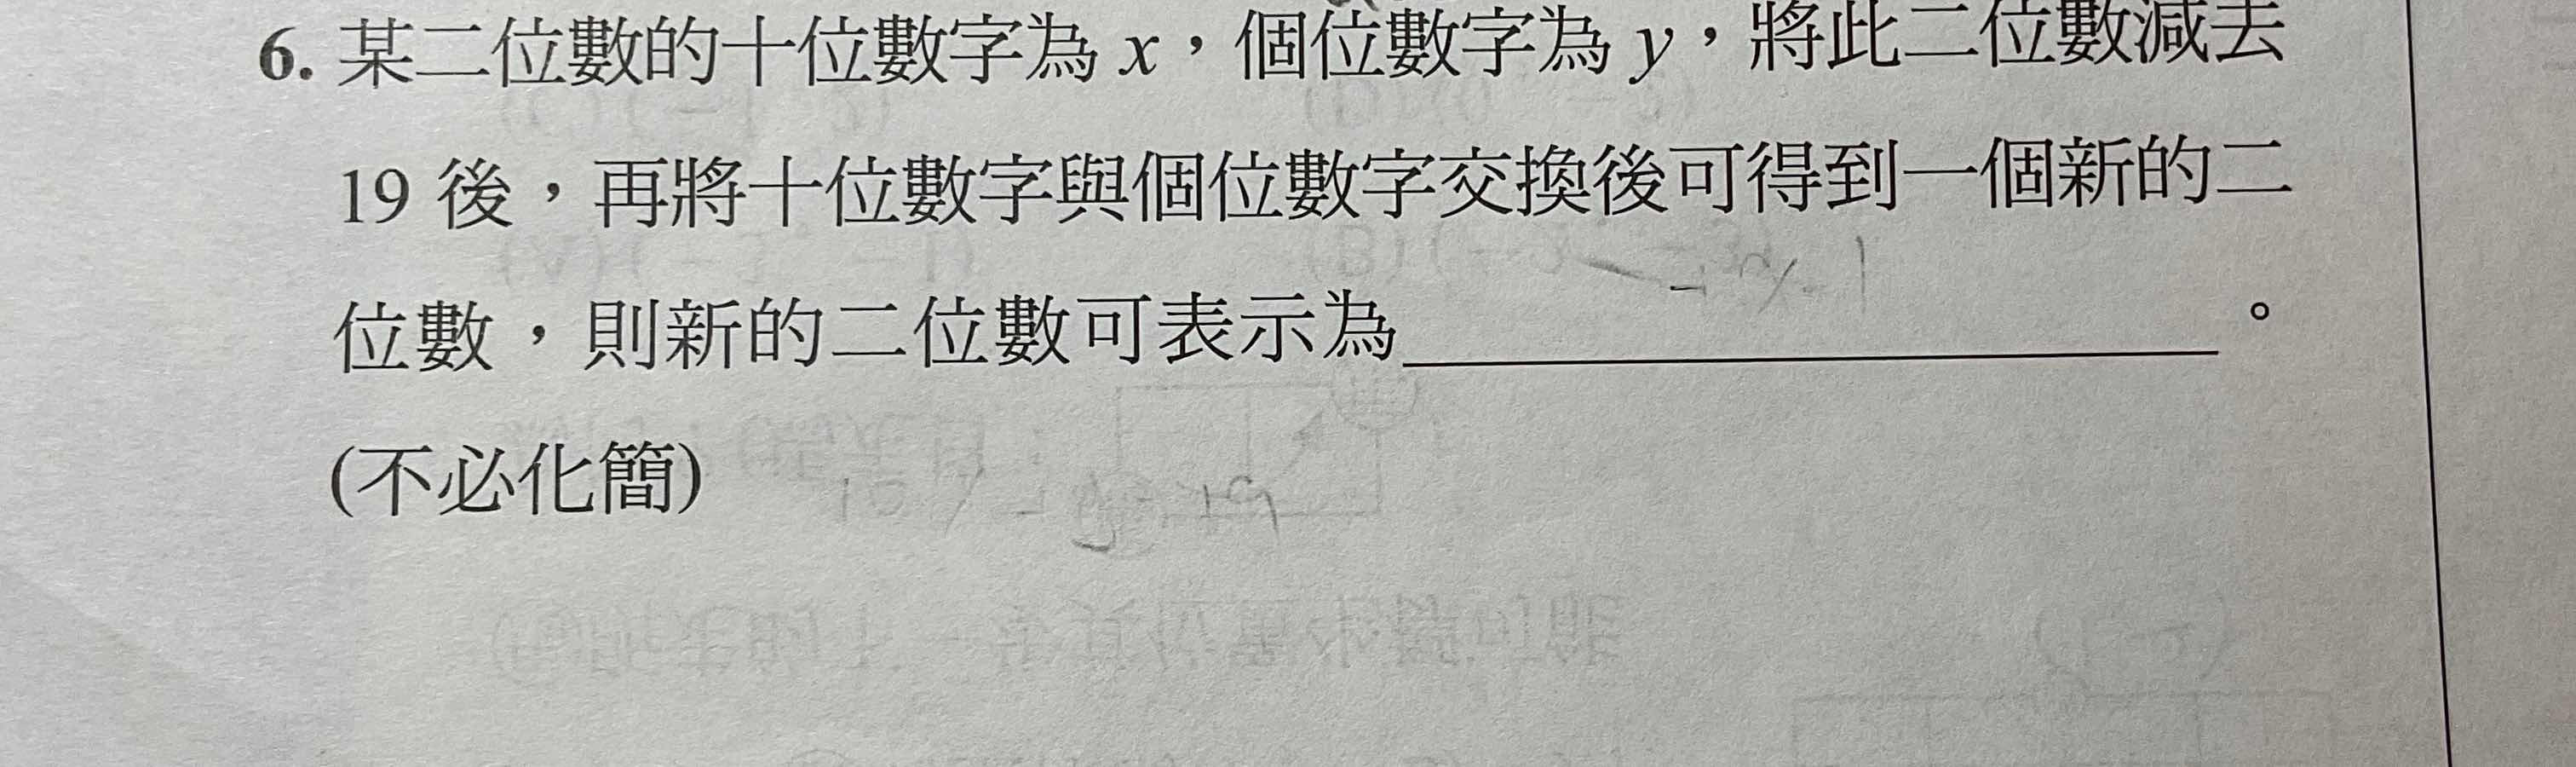 6. 某二位數的十位數字為 x，個位數字為 y，將此二位數減去
19 後，再將十位數字與個位數字交換後可得到一個新的二
位數，則新的二位數可表示為＿＿＿＿＿＿＿＿。
(不必化簡)